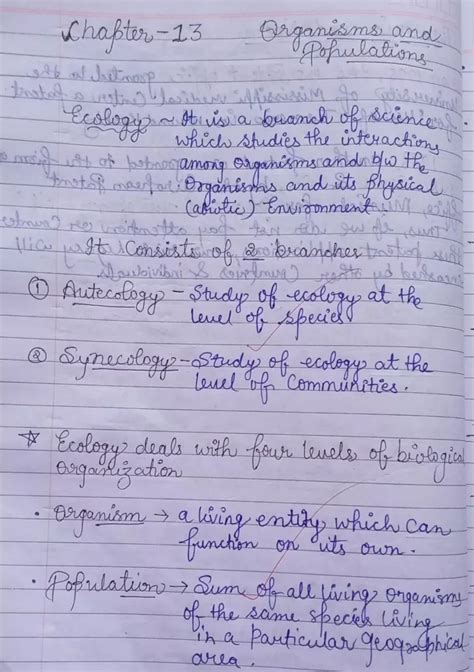 Chapter-13 Organisms and
Populations
Ecology ~ It is a branch of science
which studies the interactions
among organisms and b/w the
Organisms and its physical
(abiotic) Environment
It Consists of 2 branches
① Autecology - Study of ecology at the
level of species
② Synecology - Study of ecology at the
level of Communities.
☆ Ecology deals with four levels of biological
organization
• Organism → a living entity which can
function on its own.
• Population → Sum of all living organisms
of the same species living
in a particular geographical
area.